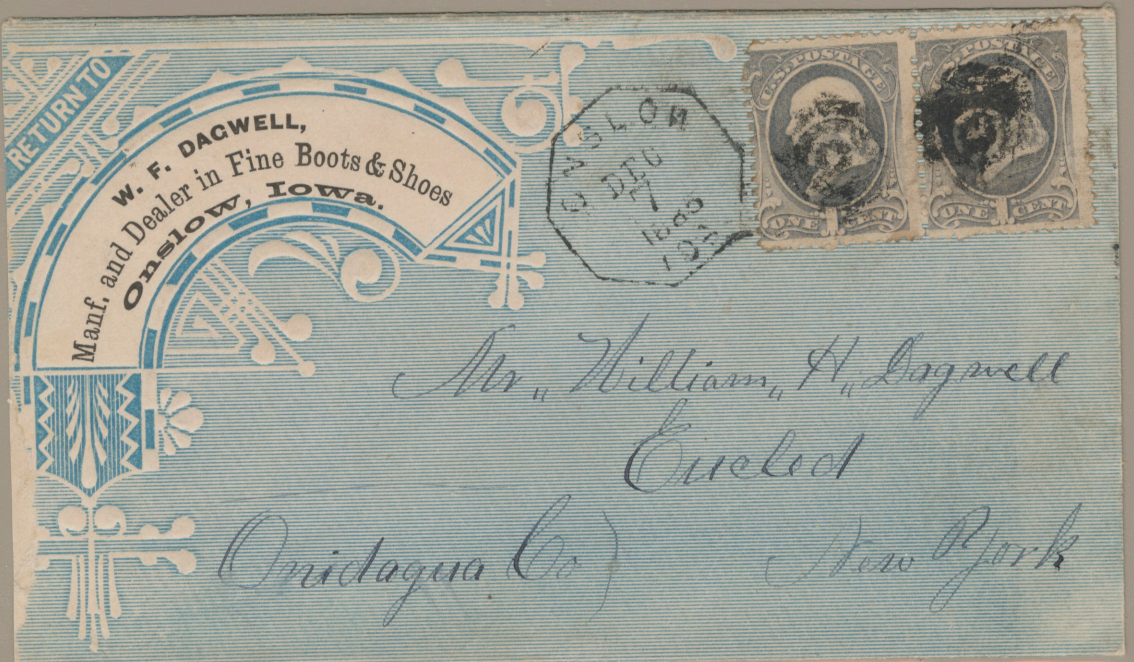 RETURN TO
W. F. DAGWELL,
Manf. and Dealer in Fine Boots & Shoes
Onslow, Iowa.
ONSLOW
DEC
7
U.S. POSTAGE
ONE 1 CENT
POSTAGE
ONE 1 CENT
Mr,, William,, H,, Dagwell
Eucled
Onidagua Co
New York